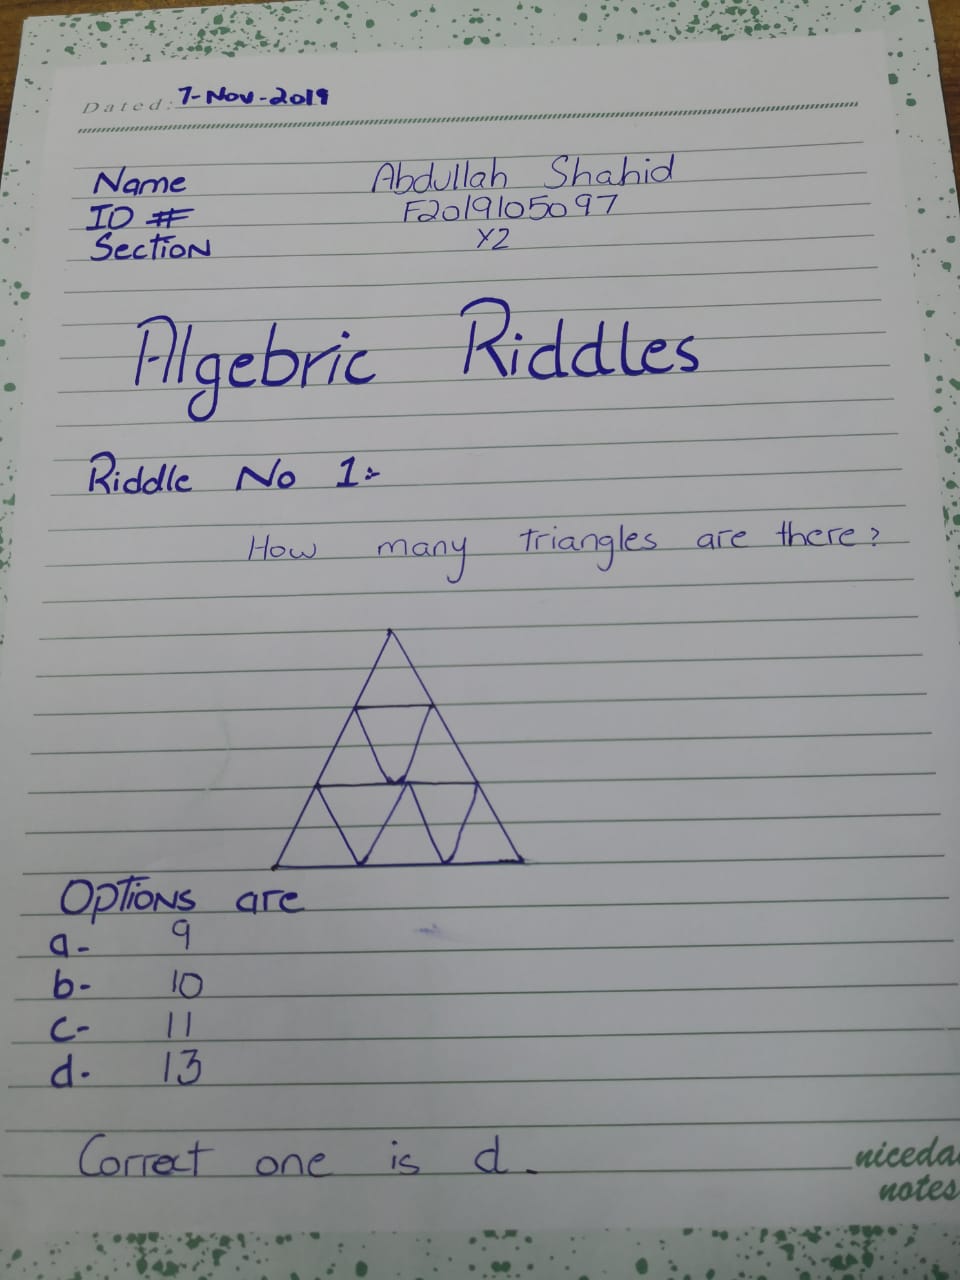 Dated: 7-Nov-2019
Name Abdullah Shahid
ID # F2019105097
Section Y2
Algebric Riddles
Riddle No 1:-
How many triangles are there?
Options are
a- 9
b- 10
c- 11
d. 13
Correct one is d.
niceda
notes